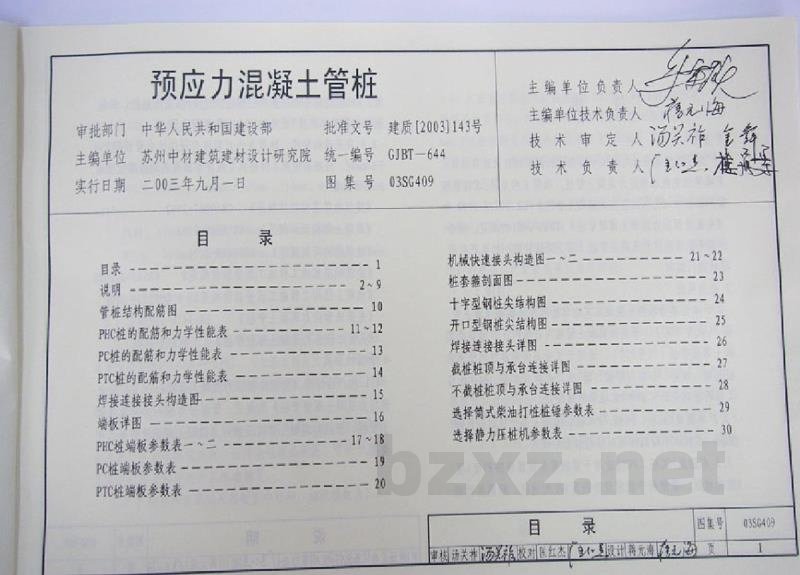 预应力混凝土管桩
审批部门 中华人民共和国建设部 批准文号 建质[2003]143号
主编单位 苏州中材建筑建材设计研究院 统一编号 GJBT-644
实行日期 二00三年九月一日 图集号 03SG409
主编单位负责人
主编单位技术负责人 蒋元海
技术审定人 汤关祚
技术负责人
目 录
目录 1
说明 2~9
管桩结构配筋图 10
PHC桩的配筋和力学性能表 11~12
PC桩的配筋和力学性能表 13
PTC桩的配筋和力学性能表 14
焊接连接接头构造图 15
端板详图 16
PHC桩端板参数表一~二 17~18
PC桩端板参数表 19
PTC桩端板参数表 20
机械快速接头构造图一~二 21~22
桩套箍剖面图 23
十字型钢桩尖结构图 24
开口型钢桩尖结构图 25
焊接连接接头详图 26
截桩桩顶与承台连接详图 27
不截桩桩顶与承台连接详图 28
选择筒式柴油打桩桩锤参数表 29
选择静力压桩机参数表 30
bzxz.net
目 录 图集号 03SG409
审核 汤关祚 汤关祚 校对 匡红杰 设计 蒋元海 蒋元海 页 1